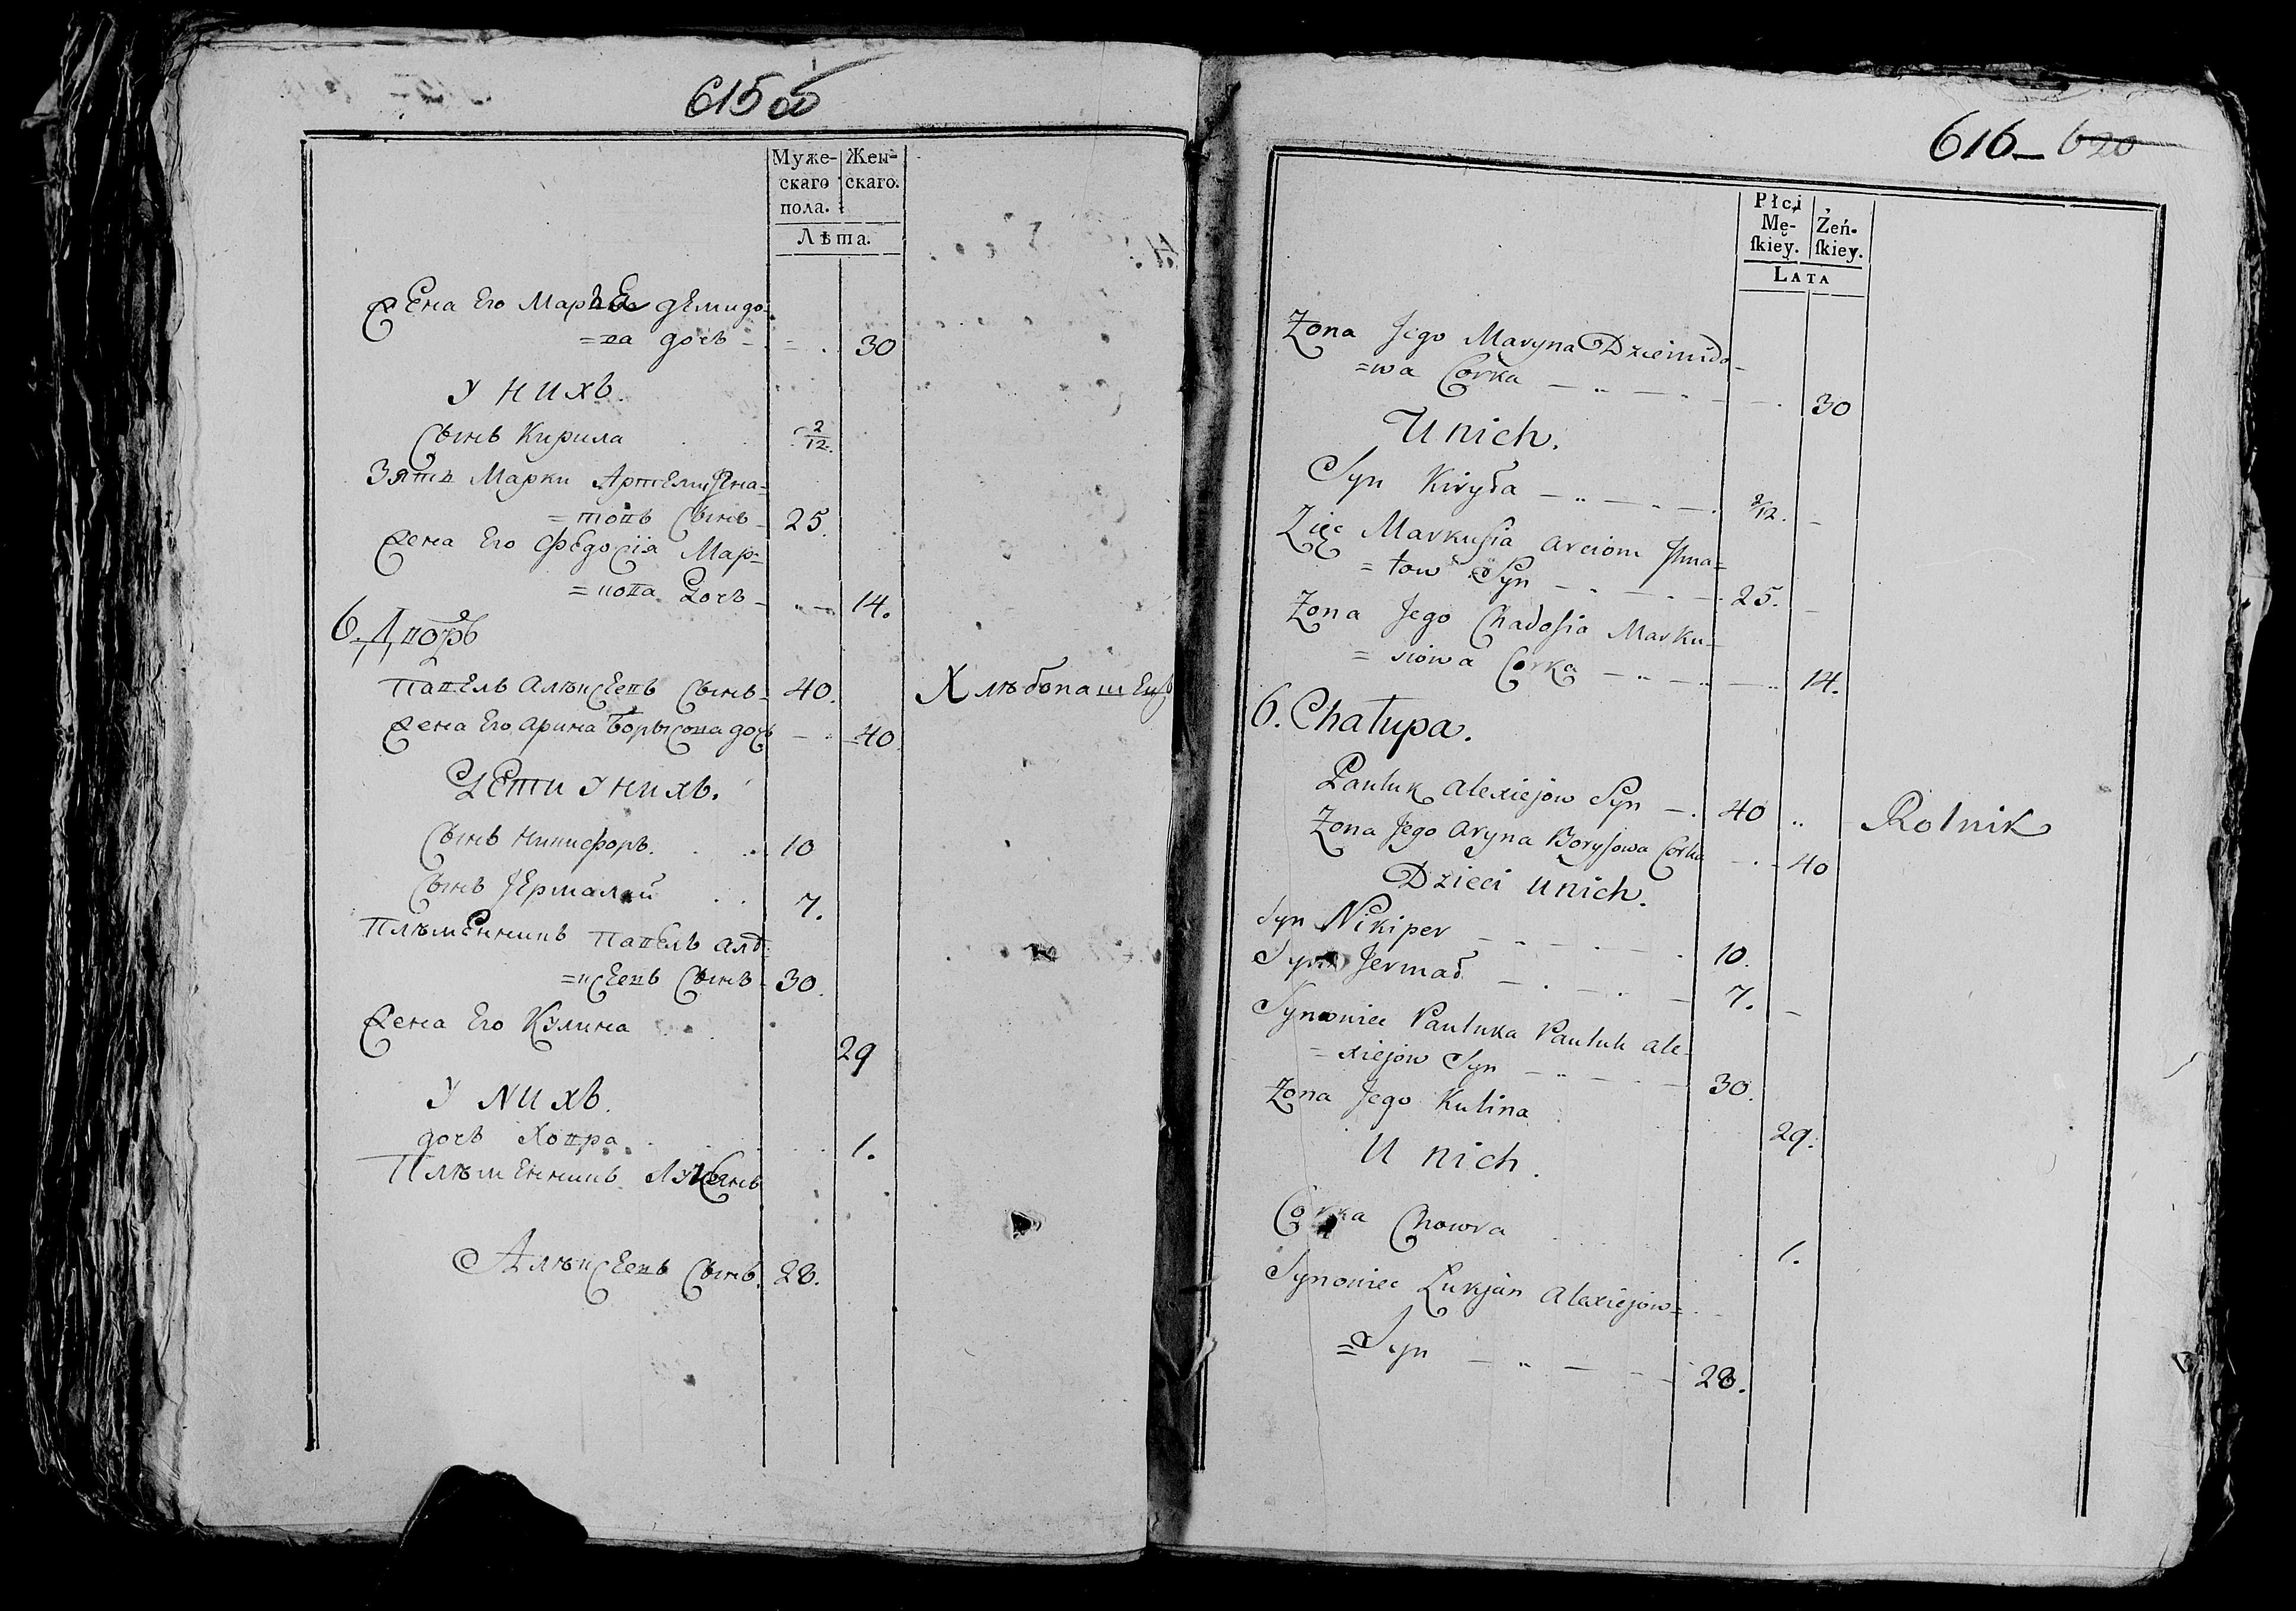 615 об
Муже- Жен-
скаго скаго.
пола.
Лѣта.
Жена Его Марья дЕмидо-
=ва дочь - 30
У нихъ.
Сынъ Кирила 2/12.
Зять Марки АртЕми Игна-
=товъ Сынъ - 25.
Жена Его ФЕдосія Мар-
=кова Дочь - 14.
6. Дворъ
ПавЕлъ АлѣксЕевъ Сынъ - 40. ХлѣбопашЕцъ
Жена Его Арина Борысова дочь - 40.
ДЕти У нихъ.
Сынъ Никифоръ. 10
Сынъ Јермалай 7.
ПлѣмЕнникъ ПавЕлъ АлЕ-
=ксЕевъ Сынъ - 30.
Жена Его Кулина 29
У Nихъ.
дочь Ховра 1.
ПлѣмЕнникъ Лукьянъ
АлѣксЕевъ Сынъ. 28.
616 - 620
Płci
Mę- Żeń-
ſkiey. ſkiey.
LATA
Żona Jego Maryna Dziemido-
=wa Corka - 30
U nich.
Syn Kiryła - 2/12. -
Zięc Markuſia Arciom Jhna-
=tow Syn - 25. -
Żona Jego Chadoſia Marku-
=siowa Corka - 14.
6. Chałupa.
Pauluk Alexiejow Syn - 40 „ Rolnik
Żona Jego Aryna Boryſowa Corka - 40
Dzieci U nich.
Syn Nikiper - 10.
Syn Jermał - 7. -
Synowiec Pauluka Pauluk Ale-
=xiejow Syn - 30.
Żona Jego Kulina 29.
U nich.
Corka Chowra 1.
Synowiec Łukjan Alexiejow=
=Syn - 28.